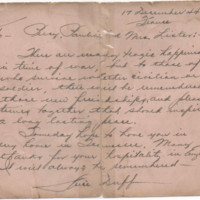 17 December 44
France
To - Perry, Pauline and Mrs. Lister:
There are many tragic happenings
in time of war, but to those of
who survive whether civilian or
soldier, there will be remembered
those new friendships, and pleasant
times together that should inspire
a long lasting peace.
Someday hope to have you in
my home in Many
thanks for your hospitality in any
I will always be remembered -
Duff